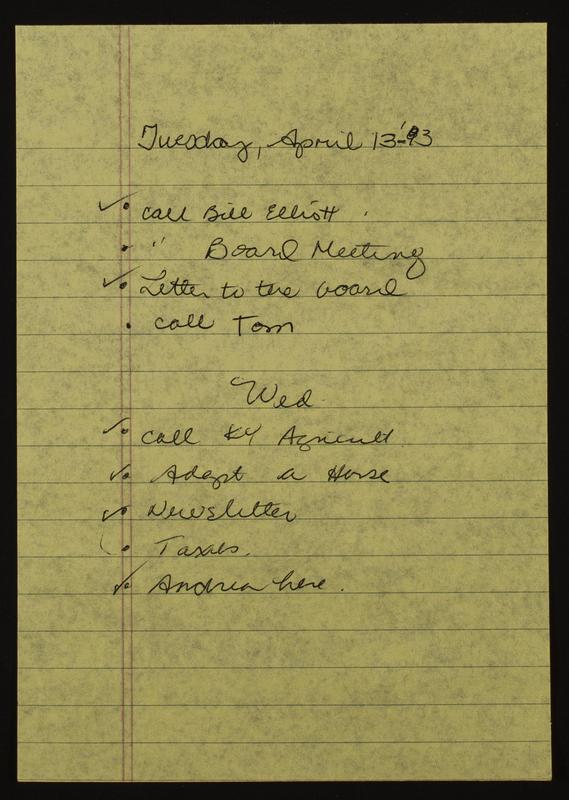 Tuesday, April 13-'93
✓• call Bill Elliott .
• " Board Meeting
✓• Letter to the board
• call Tom
Wed.
✓• call KY Agricult.
✓• Adopt a Horse
✓• Newsletter
• Taxes.
✓• Andrea here.